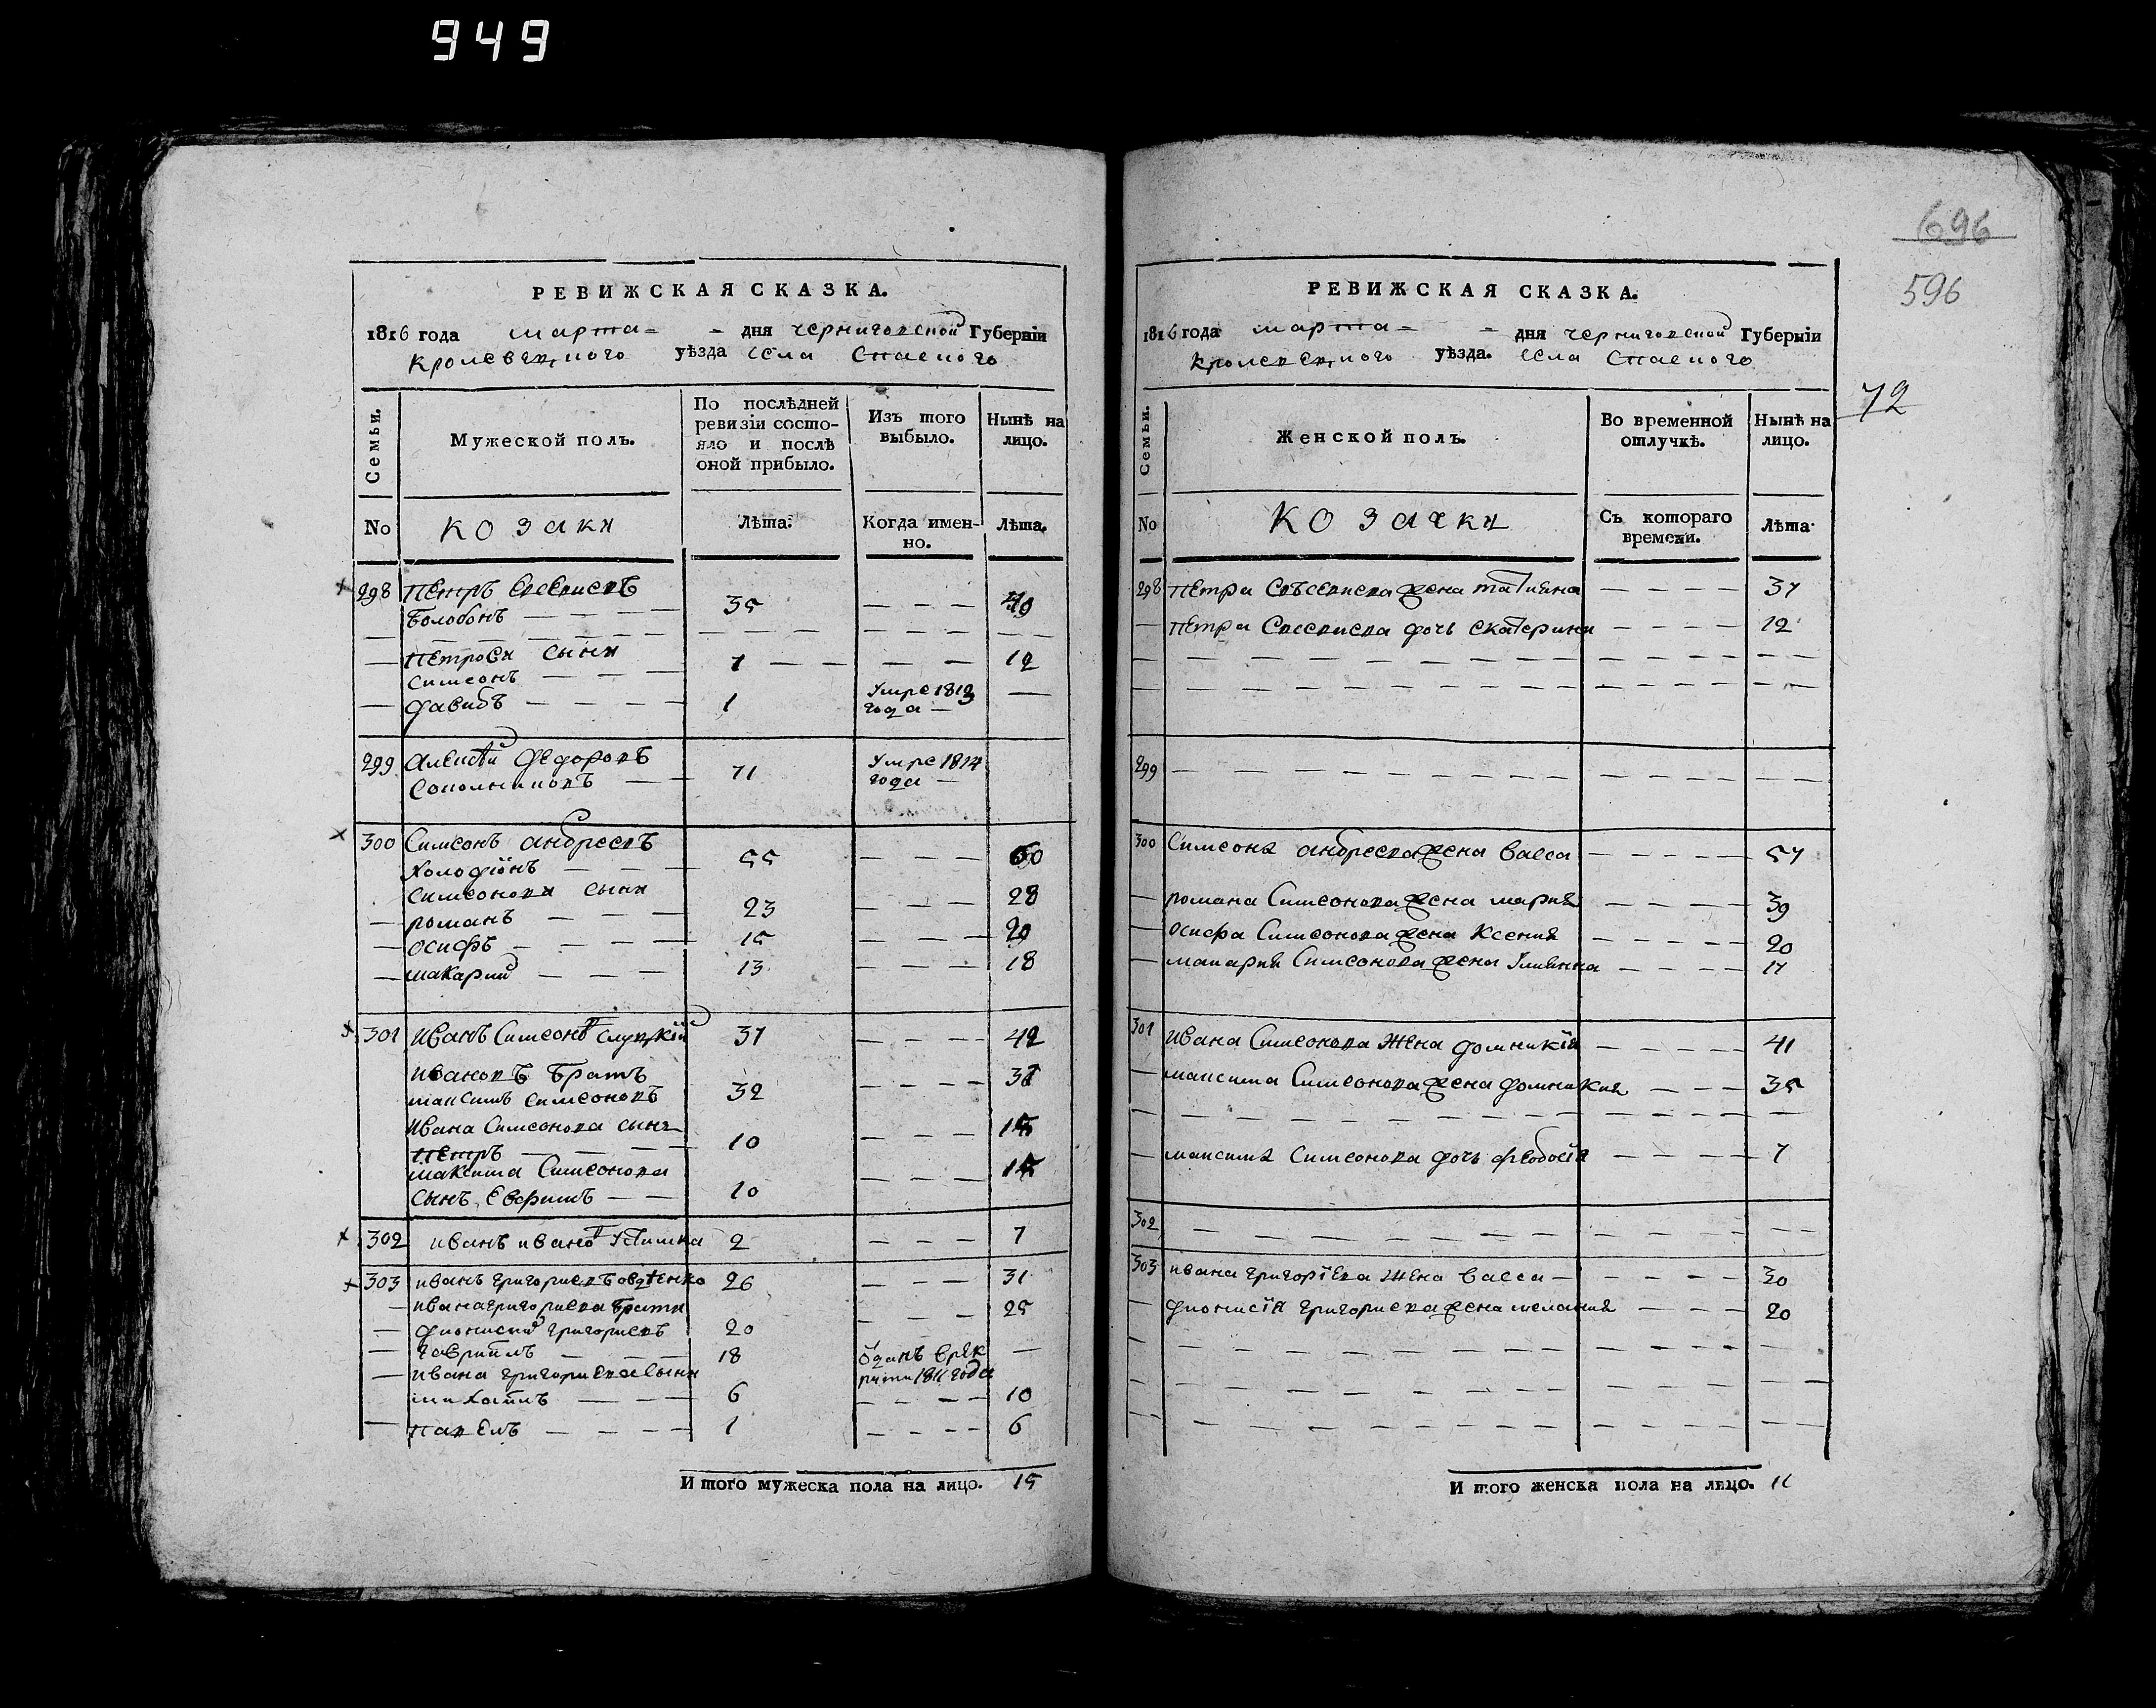 949
696
596
72
РЕВИЖСКАЯ СКАЗКА.
1816 года марта – – дня черниговской Губернїи
кролевецкого уѣзда села Спаского
Семьи.
Мужеской полъ.
По послѣдней ревизіи состояло и послѣ оной прибыло.
Изъ того выбыло.
Нынѣ на лицо.
No козаки Лѣта. Когда именно. Лѣта.
298 Петръ Евсеевъ
Болобонъ — — 35 — — — 40
Петрови сыни
Симеонъ — — — 7 — — — — 12
давидъ — — — — 1 Умре 1813 года — —
299 Алексѣй Федоровъ
— 71 Умре 1814 года —
300 Симеонъ андреевъ
Холодїонъ — — — 55 — — — 60
Симеонови сыни
романъ — — — 23 — — — 28
осифъ — — — — 15 — — — 20
макарий — — — 13 — — — 18
301 Иванъ Симеоновъ слуцкїй 37 — — — — 42
Ивановъ братъ
максимъ симеоновъ 32 — — — — 37
Ивана Симеонова сынъ
Петръ — — — — 10 — — — 15
максима Симеонова
сынъ Евфимъ — — 10 — — — 15
302 иванъ ивановъ Устимка 2 — — — 7
303 иванъ григориевъ овдѣенко 26 — — — 31
ивана григориева брати
дионисий григориевъ 20 — — 25
гавриилъ — — — 18 Ѿданъ врекрути 1811 года —
ивана григориева сыни
михаилъ — — — 6 — — — — 10
павелъ — — — — 1 — — — — 6
И того мужеска пола на лицо. 15
РЕВИЖСКАЯ СКАЗКА.
1816 года марта – – дня черниговской Губернїи
кролевецкого уѣзда. села Спаского
Семьи.
Женской полъ.
Во временной отлучкѣ.
Нынѣ на лицо.
No козачки Съ котораго времени. Лѣта
298 Петра Евсеевиева жена татияна — — — — 37
— Петра Евсеевиева дочь екатерина — — — — 12
299 — — — — — — — —
300 Симеона андреева жена васса — — — — — 57
— романа Симеонова жена мария — — — — 39
— Осифа Симеонова жена Ксения — — — — 20
— макария Симеонова жена Улиянна — — — — 17
301 Ивана Симеонова жена домникїя — — — — 41
— максима Симеонова жена домникия — — — 35
— максима Симеонова дочь феодосїя — — — — 7
302 — — — — — — — —
303 ивана григорїева жена васса — — — — — 30
— дионисїя григориева жена мелания — — — 20
И того женска пола на лицо. 11